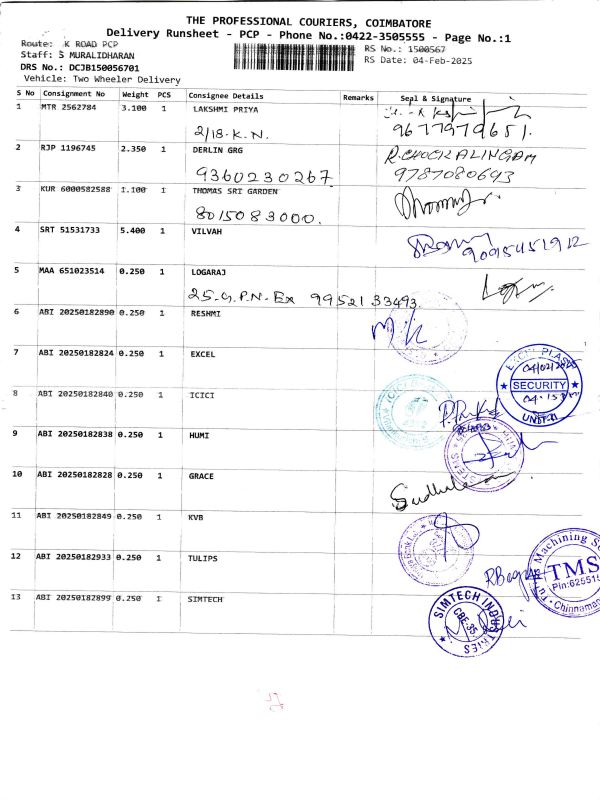 THE PROFESSIONAL COURIERS, COIMBATORE
Delivery Runsheet - PCP - Phone No.:0422-3505555 - Page No.:1
Route: K ROAD PCP
RS No.: 1500567
Staff: S MURALIDHARAN
RS Date: 04-Feb-2025
DRS No.: DCJB150056701
Vehicle: Two Wheeler Delivery
S No Consignment No Weight PCS Consignee Details Remarks Seal & Signature
1 MTR 2562784 3.100 1 LAKSHMI PRIYA
2/18.K.N. 9677979651.
2 RJP 1196745 2.350 1 DERLIN GRG R.CHOCKALINGAM
9360230267. 9787080693
3 KUR 6000582588 1.100 1 THOMAS SRI GARDEN
8015083000.
4 SRT 51531733 5.400 1 VILVAH
9095451912
5 MAA 651023514 0.250 1 LOGARAJ
25.G.P.N.Ex 9952133493
6 ABI 20250182890 0.250 1 RESHMI
7 ABI 20250182824 0.250 1 EXCEL
04/02/2025
SECURITY
UNIT-II
8 ABI 20250182840 0.250 1 ICICI
9 ABI 20250182838 0.250 1 HUMI
10 ABI 20250182828 0.250 1 GRACE
11 ABI 20250182849 0.250 1 KVB
12 ABI 20250182933 0.250 1 TULIPS
Machining
TMS
Pin:625515
Chinnama
13 ABI 20250182899 0.250 1 SIMTECH
SIMTECH INDUSTRIES
CBE-35